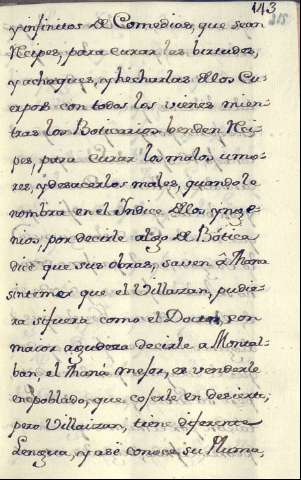 143
215
y infinitos de Comedias, que sean
Recipes, para curar las birtudes,
y achaques, y hecharlas de los Cu-
erpos con todos los vienes mien-
tras los Boticarios benden Reci-
pes, para curar los malos umo-
res, y desacer los males, quando le
nombra en el Yndice de los yngε-
nios, por decirle algo de Bótica
dice que sus obras, saven â Maná
sinteme que el Villaizan, pudie-
ra si fuera como el Doctor, con
maior agudeza decirle a Montal-
ban, el Maná mejor, es venderle
en poblado, que cojerle en desierto,
pero Villaizan, tiene diferente
Lengua, y asi conoce su Pluma,